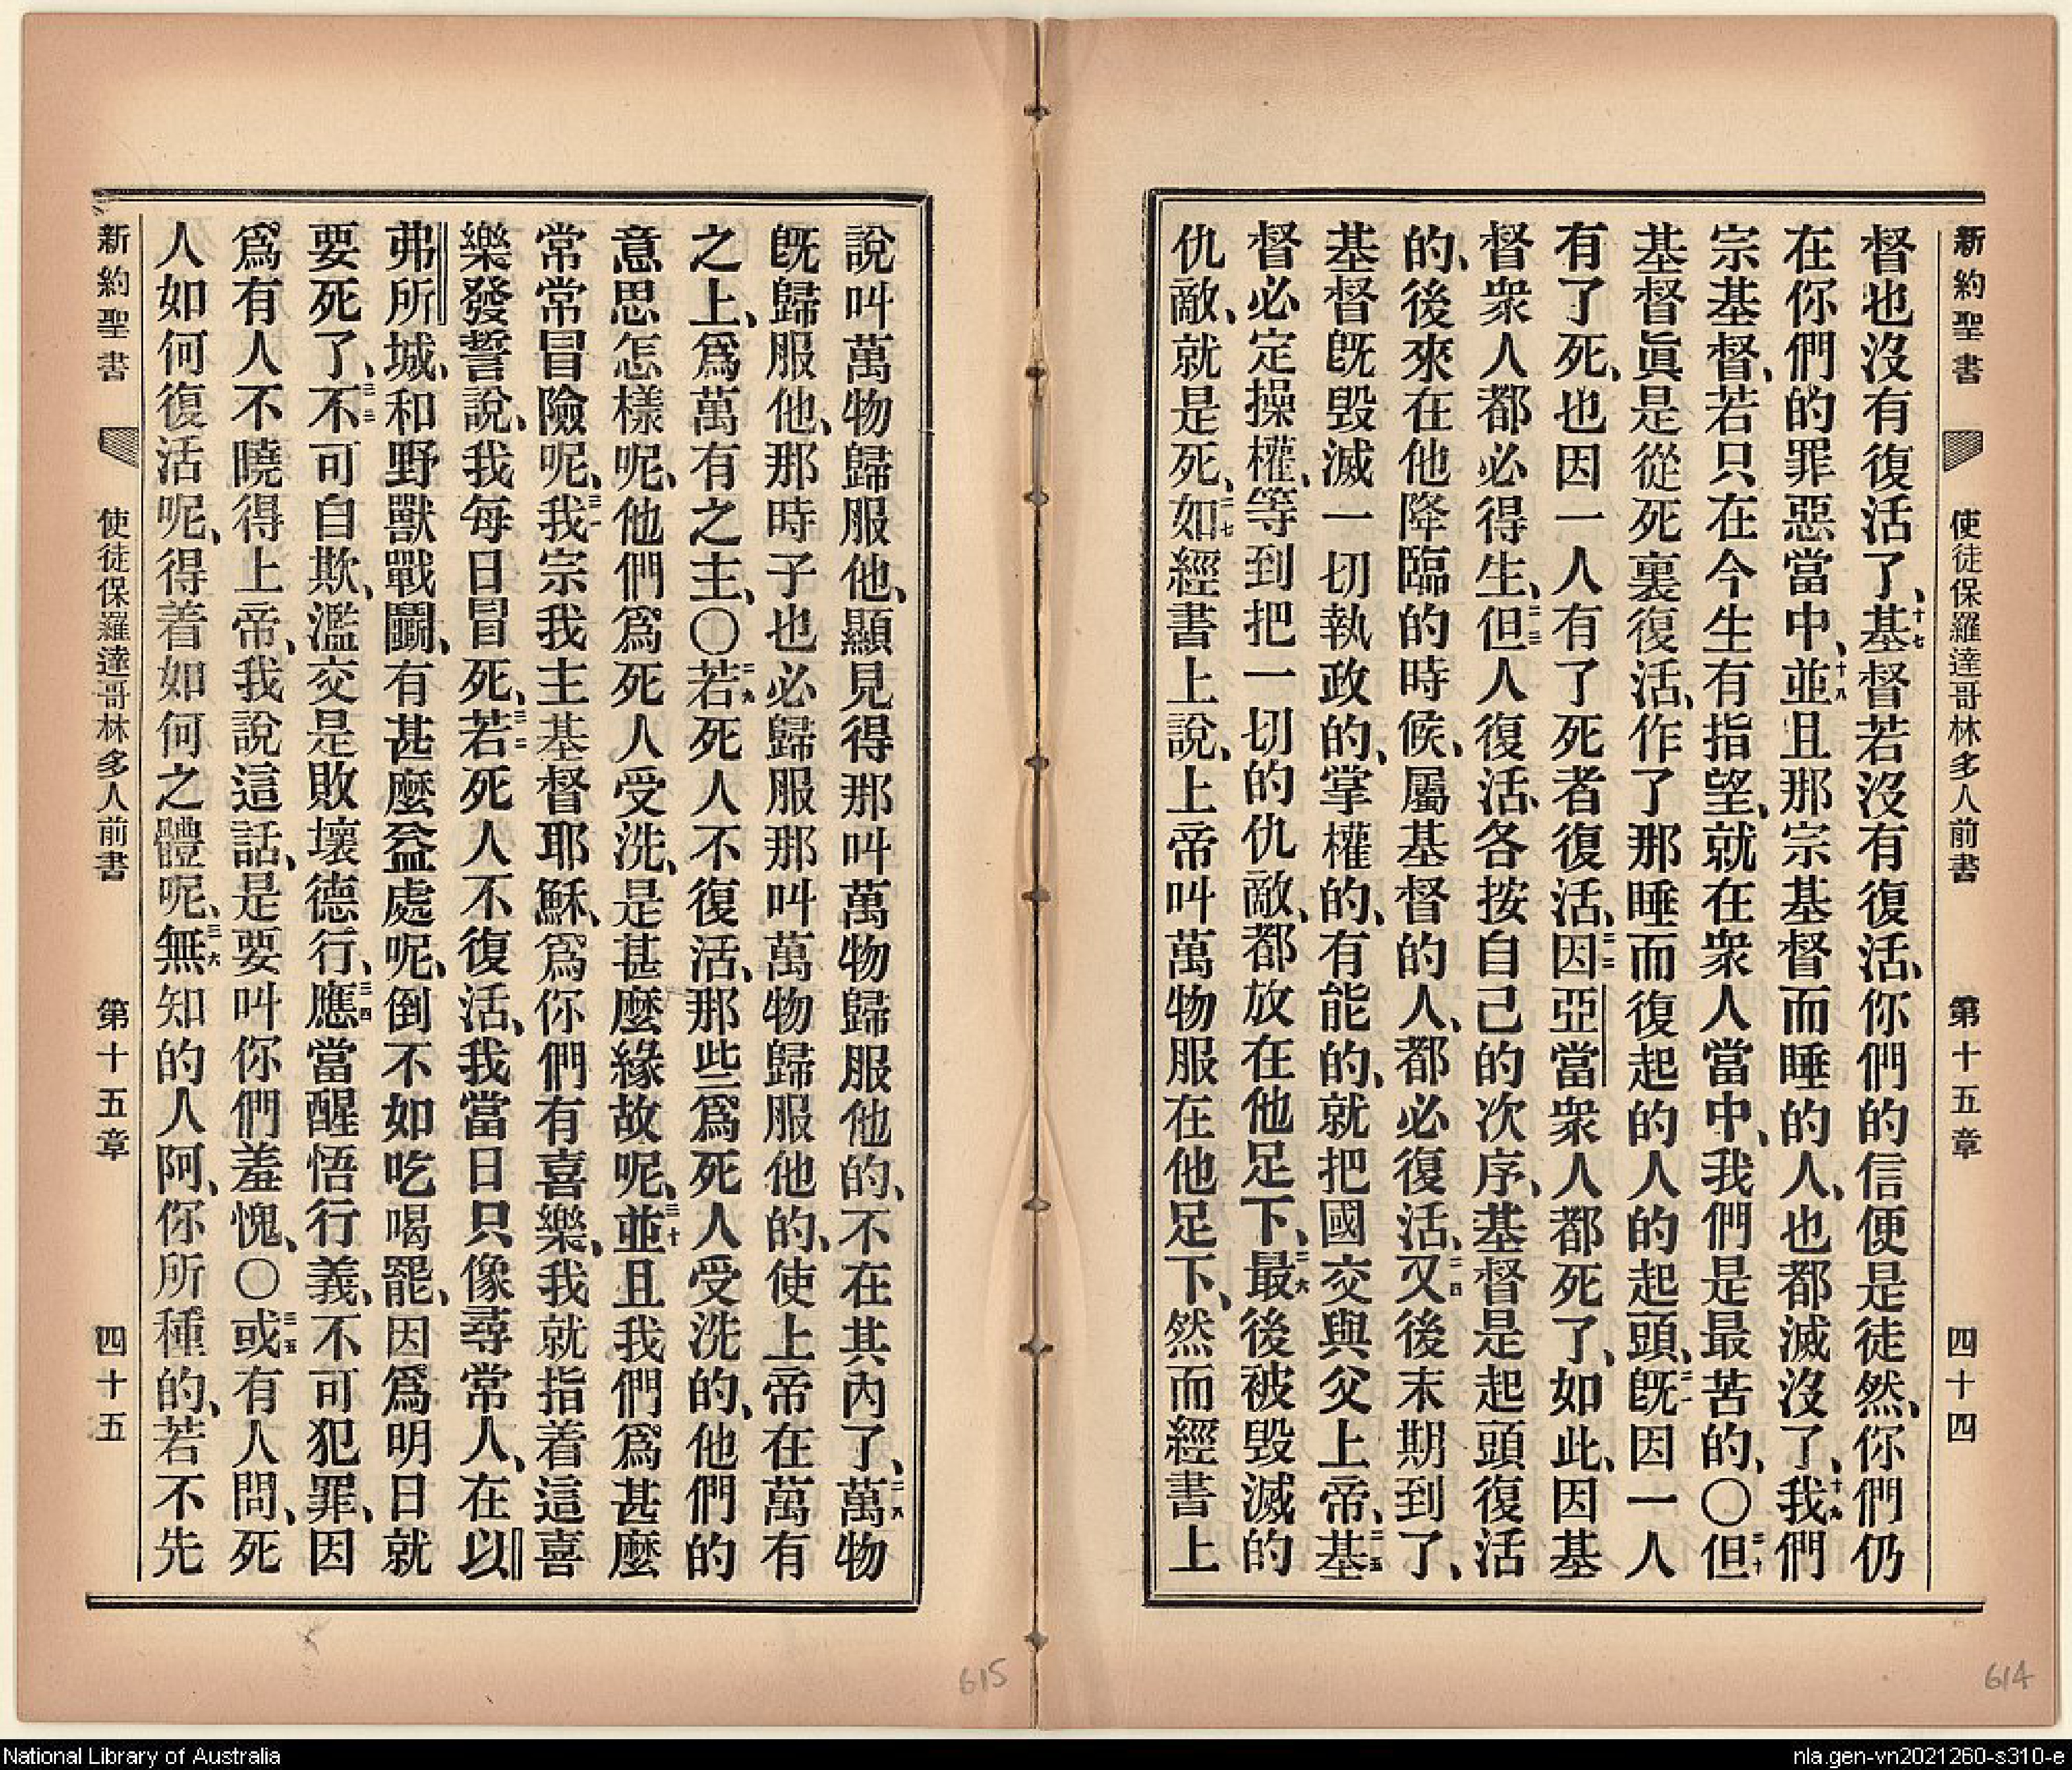 新約聖書 使徒保羅達哥林多人前書 第十五章 四十四
督也沒有復活了、十七基督若沒有復活、你們的信便是徒然、你們仍
在你們的罪惡當中、十八並且那宗基督而睡的人、也都滅沒了、十九我們
宗基督、若只在今生有指望、就在衆人當中、我們是最苦的、〇二十但
基督眞是從死裏復活、作了那睡而復起的人的起頭、二一旣因一人
有了死、也因一人有了死者復活、二二因亞當衆人都死了、如此、因基
督衆人都必得生、二三但人復活、各按自己的次序、基督是起頭復活
的、後來在他降臨的時候、屬基督的人、都必復活、二四又後末期到了、
基督旣毀滅一切執政的、掌權的、有能的、就把國交與父上帝、二五基
督必定操權、等到把一切的仇敵、都放在他足下、二六最後被毀滅的
仇敵、就是死、二七如經書上說、上帝叫萬物服在他足下、然而經書上
說叫萬物歸服他、顯見得那叫萬物歸服他的、不在其內了、二八萬物
旣歸服他、那時子也必歸服那叫萬物歸服他的、使上帝在萬有
之上、爲萬有之主、〇二九若死人不復活、那些爲死人受洗的、他們的
意思怎樣呢、他們爲死人受洗、是甚麼緣故呢、三十並且我們爲甚麼
常常冒險呢、三一我宗我主基督耶穌、爲你們有喜樂、我就指着這喜
樂發誓說、我每日冒死、三二若死人不復活、我當日只像尋常人、在以
弗所城、和野獸戰鬬、有甚麼益處呢、倒不如吃喝罷、因爲明日就
要死了、三三不可自欺、濫交是敗壞德行、三四應當醒悟行義、不可犯罪、因
爲有人不曉得上帝、我說這話、是要叫你們羞愧、〇三五或有人問、死
人如何復活呢、得着如何之體呢、三六無知的人阿、你所種的、若不先
新約聖書 使徒保羅達哥林多人前書 第十五章 四十五
615
614
National Library of Australia
nla.gen-vn2021260-s310-e